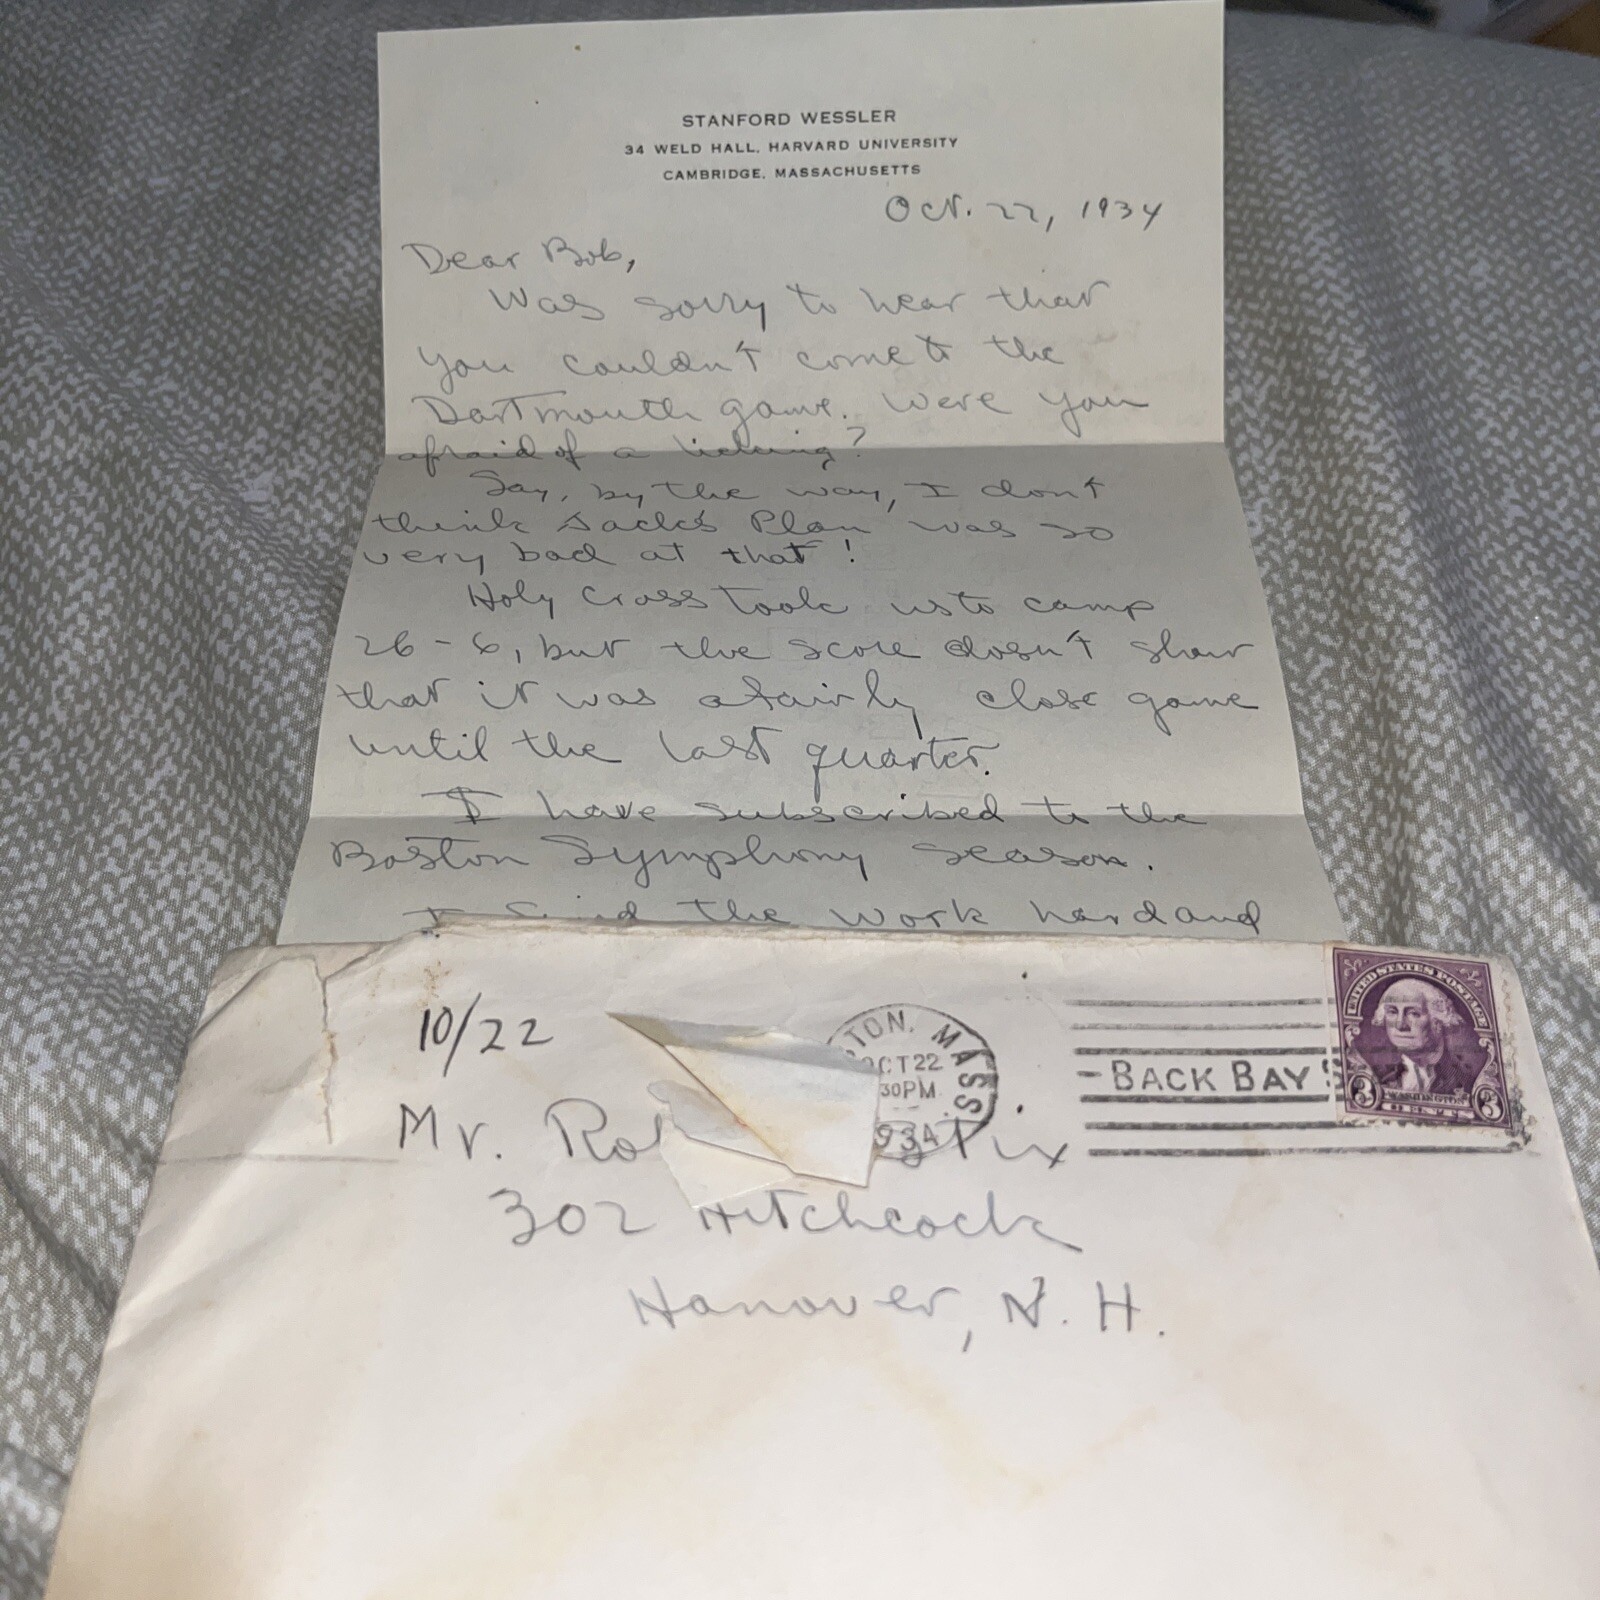 STANFORD WESSLER
34 WELD HALL, HARVARD UNIVERSITY
CAMBRIDGE, MASSACHUSETTS
Oct. 22, 1934
Dear Bob,
Was sorry to hear that
you couldn't come to the
Dartmouth game. Were you
afraid of a licking?
Say, by the way, I don't
think Jack's Plan was so
very bad at that!
Holy Cross took us to camp
26-6, but the score doesn't show
that it was a fairly close game
until the last quarter.
I have subscribed to the
Boston Symphony season.
I find the work hard and
10/22
TON, MASS
OCT 22
30 PM
934
BACK BAY
UNITED STATES POSTAGE
3 WASHINGTON 3
CENTS
Mr.
302 Hitchcock
Hanover, N. H.